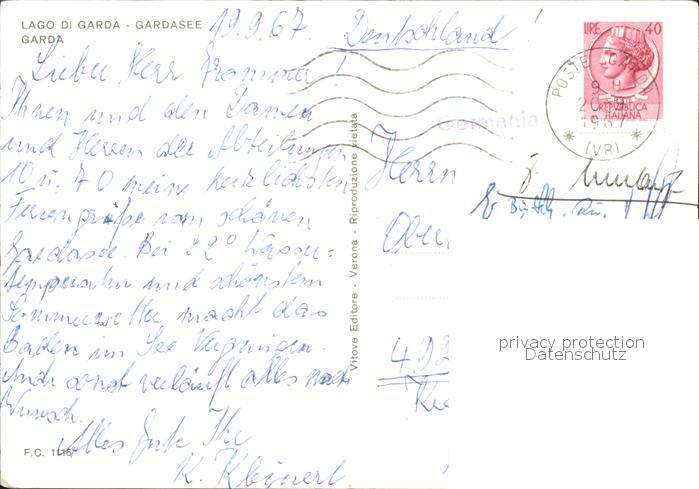 LAGO DI GARDA - GARDASEE
GARDA
19.9.67. Deutschland!
LIRE 40
REPUBBLICA
ITALIANA
POSTE
20-9
1967
(VR)
Germania
Lieber Herr Bramma!
Ihnen und den Damen
und Herren der Abteilungen
10 u. 70 meine herzlichsten
Feriengrüße vom schönen
Gardasee. Bei 22° Wasser=
temperatur und schönstem
Sommerwetter macht das
Baden im See Vergnügen.
Auch sonst verläuft alles nach
Wunsch.
Alles Gute Ihr
K.
Vitove Editore - Verona - Riproduzione vietata
Herrn
Ober
492
privacy protection
Datenschutz
F.C. 1118